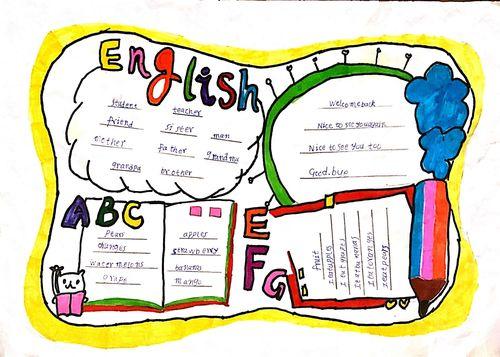 English
student teacher
friend sister man
mother father grandma
grandpa brother
Welcome back
Nice to see you again
Nice to see you too
Good.bye
ABC
Pears
oranges
watermelons
grape
apples
strawberry
bananas
mango
EFG
fruit
I eat apples
I eat grapes
I eat bananas
I eat oranges
I eat pears